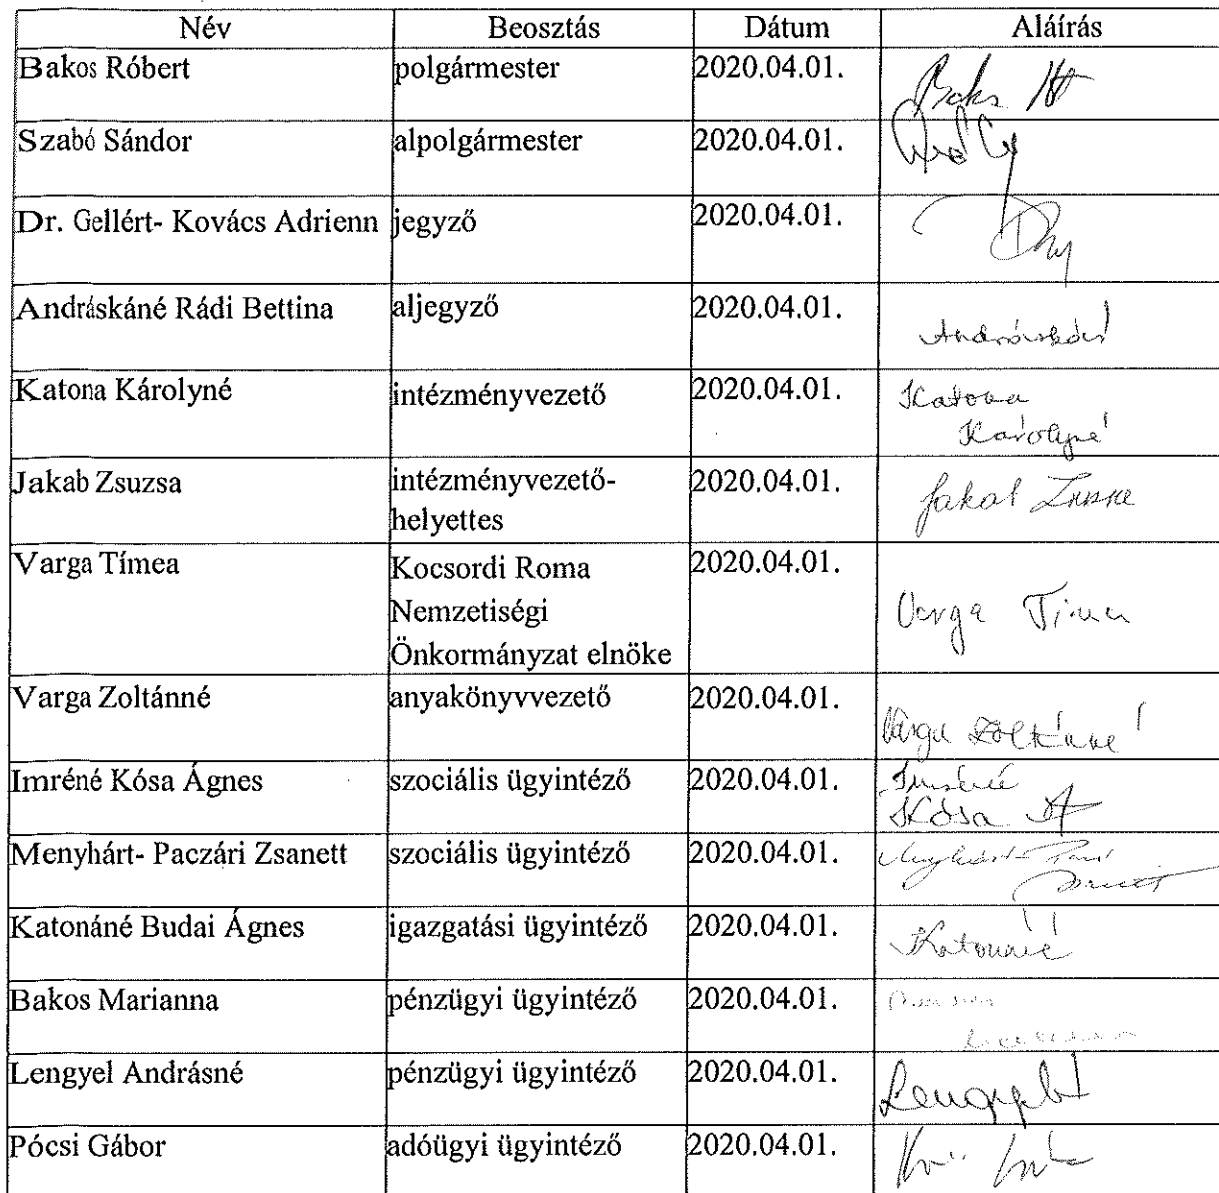 Név Beosztás Dátum Aláírás
Bakos Róbert polgármester 2020.04.01.
Szabó Sándor alpolgármester 2020.04.01.
Dr. Gellért- Kovács Adrienn jegyző 2020.04.01.
Andráskáné Rádi Bettina aljegyző 2020.04.01.
Katona Károlyné intézményvezető 2020.04.01. Katona
Károlyné
Jakab Zsuzsa intézményvezető- 2020.04.01. Jakab
helyettes
Varga Tímea Kocsordi Roma 2020.04.01.
Nemzetiségi Varga Tímea
Önkormányzat elnöke
Varga Zoltánné anyakönyvvezető 2020.04.01. Varga Zoltánné
Imréné Kósa Ágnes szociális ügyintéző 2020.04.01. Imréné
Kósa Á
Menyhárt- Paczári Zsanett szociális ügyintéző 2020.04.01.
Katonáné Budai Ágnes igazgatási ügyintéző 2020.04.01. Katonáné
Bakos Marianna pénzügyi ügyintéző 2020.04.01.
Lengyel Andrásné pénzügyi ügyintéző 2020.04.01.
Pócsi Gábor adóügyi ügyintéző 2020.04.01.